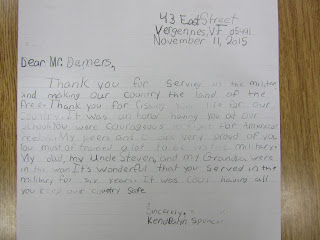 43 East Street
Vergennes, VT 05491
November 11, 2015
Dear Mr. Damers,
Thank you for serving in the military
and making our country the land of the
free. Thank you for risking your life for our
country. It was an honor having you at our
school. You were courageous to fight for America's
freedom. My peers and I are very proud of you
you must of trained a lot to be in the military.
My dad, my Uncle Steven, and my Grandpa were
in the war. It's wonderful that you served in the
military for six years. It was cool having all
you keep our country safe.
Sincerely,